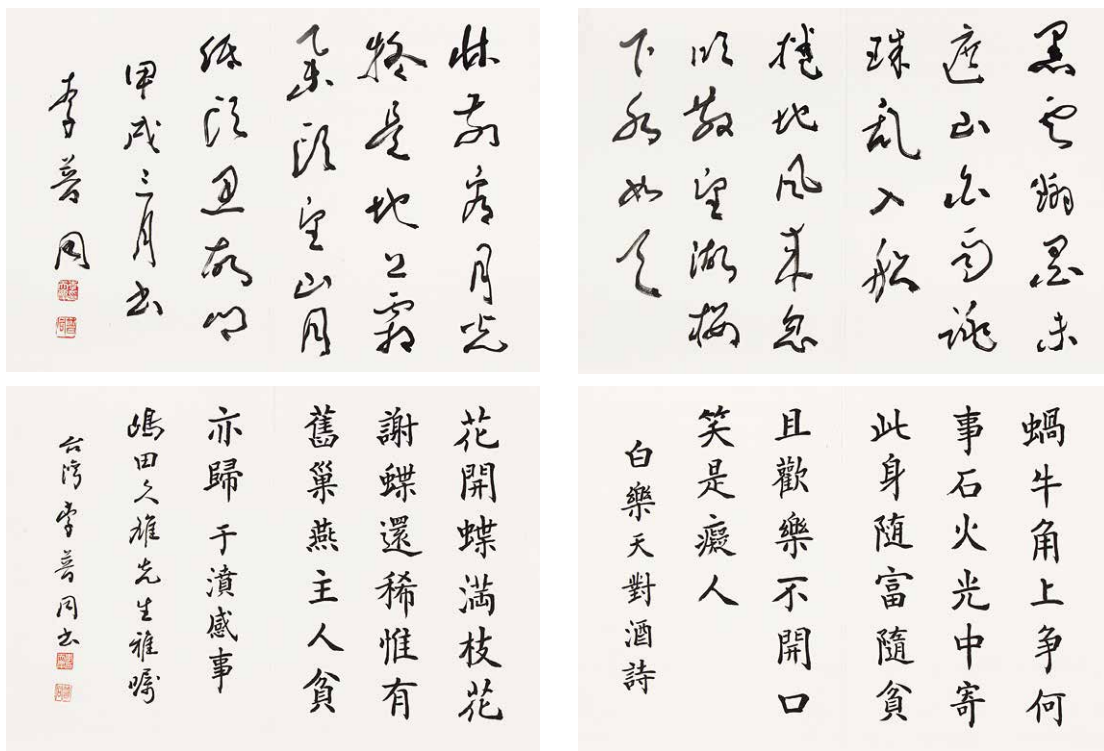 黑雲翻墨未
遮山白雨跳
珠乱入船
捲地風来忽
吹散望湖楼
下水如天
牀前看月光
疑是地上霜
举頭望山月
低頭思故鄉
甲戌三月書
李普同
蝸牛角上争何
事石火光中寄
此身随富隨貧
且歡樂不開口
笑是癡人
白樂天對酒詩
花開蝶満枝花
謝蝶還稀惟有
舊巢燕主人貧
亦歸 于濆感事
嶋田久雄先生雅嘱
台湾李普同書